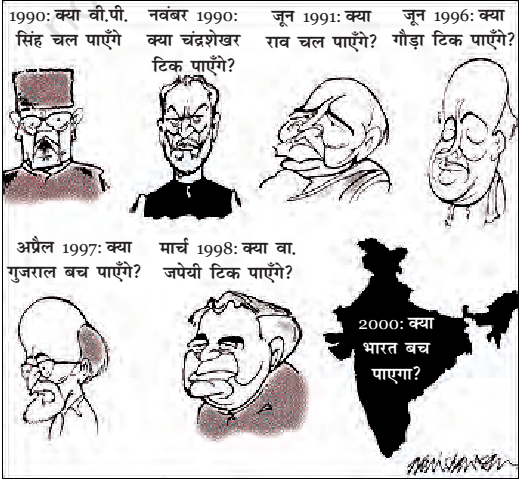 1990: क्या वी.पी.
सिंह चल पाएँगे
नवंबर 1990:
क्या चंद्रशेखर
टिक पाएँगे?
जून 1991: क्या
राव चल पाएँगे?
जून 1996: क्या
गौड़ा टिक पाएँगे?
अप्रैल 1997: क्या
गुजराल बच पाएँगे?
मार्च 1998: क्या वा.
जपेयी टिक पाएँगे?
2000: क्या
भारत बच
पाएगा?